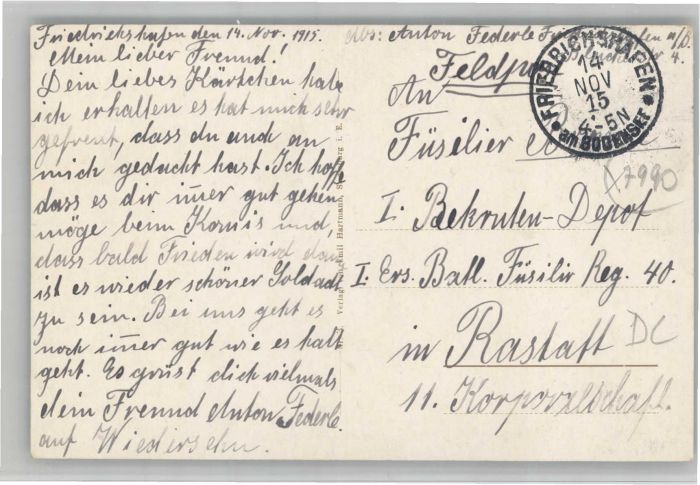 Friedrichshafen den 14. Nov. 1915.
Mein lieber Freund!
Dein liebes Kärtchen habe
ich erhalten es hat mich sehr
gefreut, dass du auch an
mich gedacht hast. Ich hoffe
dass es dir im̄er gut gehen
möge beim Komis und,
dass bald Frieden wird dan
ist es wieder schöner Soldad
zu sein. Bei uns geht es
noch im̄er gut wie es halt
geht. Es grüst dich vielmals
dein Freund Anton Federle.
auf Wiedersehn.
Abs: Anton Federle
4.
Feldpo
An
Füsilier
I. Rekruten-Depot
I. Ers. Batl. Füsilir Reg. 40.
in Rastatt
11. Korporalschaft.
FRIEDRICHSHAFEN
14
NOV
15
4-5N
am BODENSEE
7990
DC
Emil Hartmann, i. E.